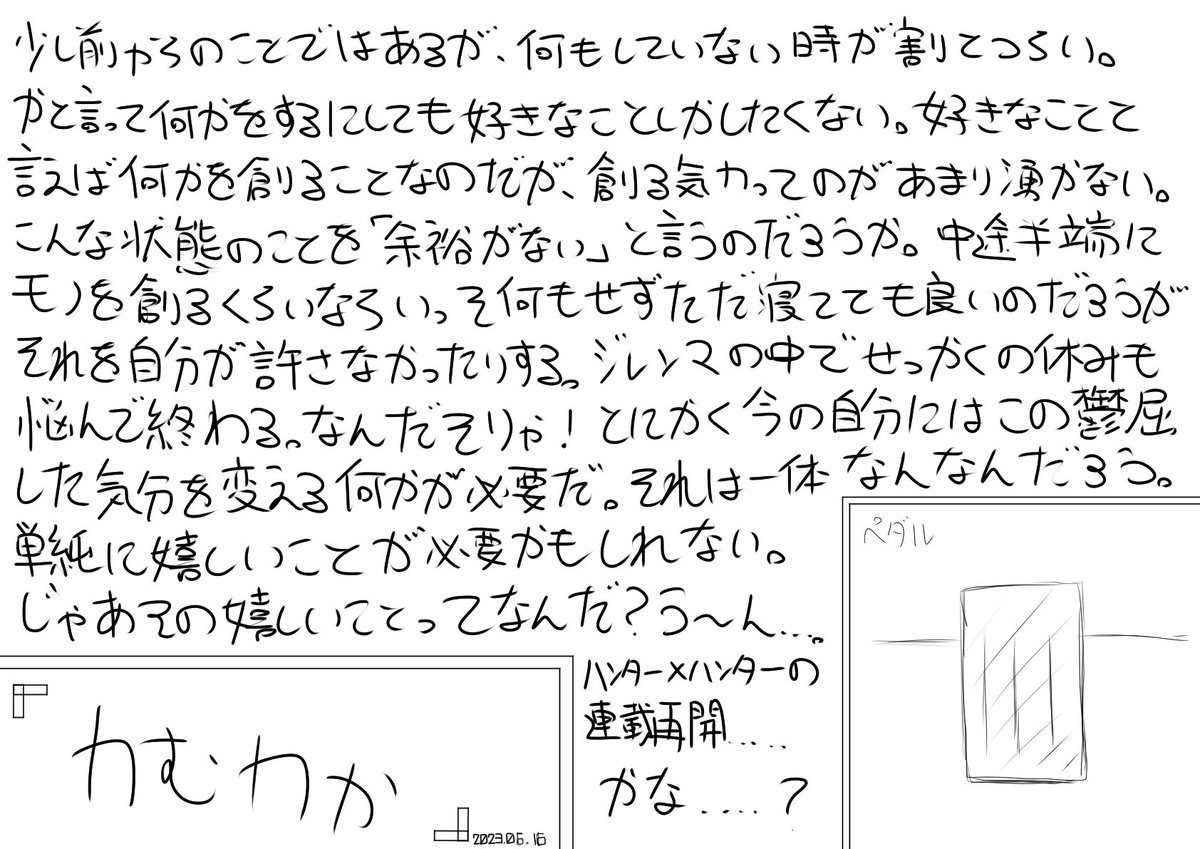 少し前からのことではあるが、何もしていない時が割とつらい。
かと言って何かをするにしても好きなことしかしたくない。好きなことと
言えば何かを創ることなのだが、創る気力ってのがあまり湧かない。
こんな状態のことを「余裕がない」と言うのだろうか。中途半端に
モノを創るくらいならいっそ何もせずただ寝てても良いのだろうが
それを自分が許さなかったりする。ジレンマの中でせっかくの休みも
悩んで終わる。なんだそりゃ!とにかく今の自分にはこの鬱屈
した気分を変える何かが必要だ。それは一体なんなんだろう。
単純に嬉しいことが必要かもしれない。
じゃあその嬉しいことってなんだ?う〜ん....。
ハンター×ハンターの
連載再開.....
かな....?
ペダル
カむカか
2023.06.16